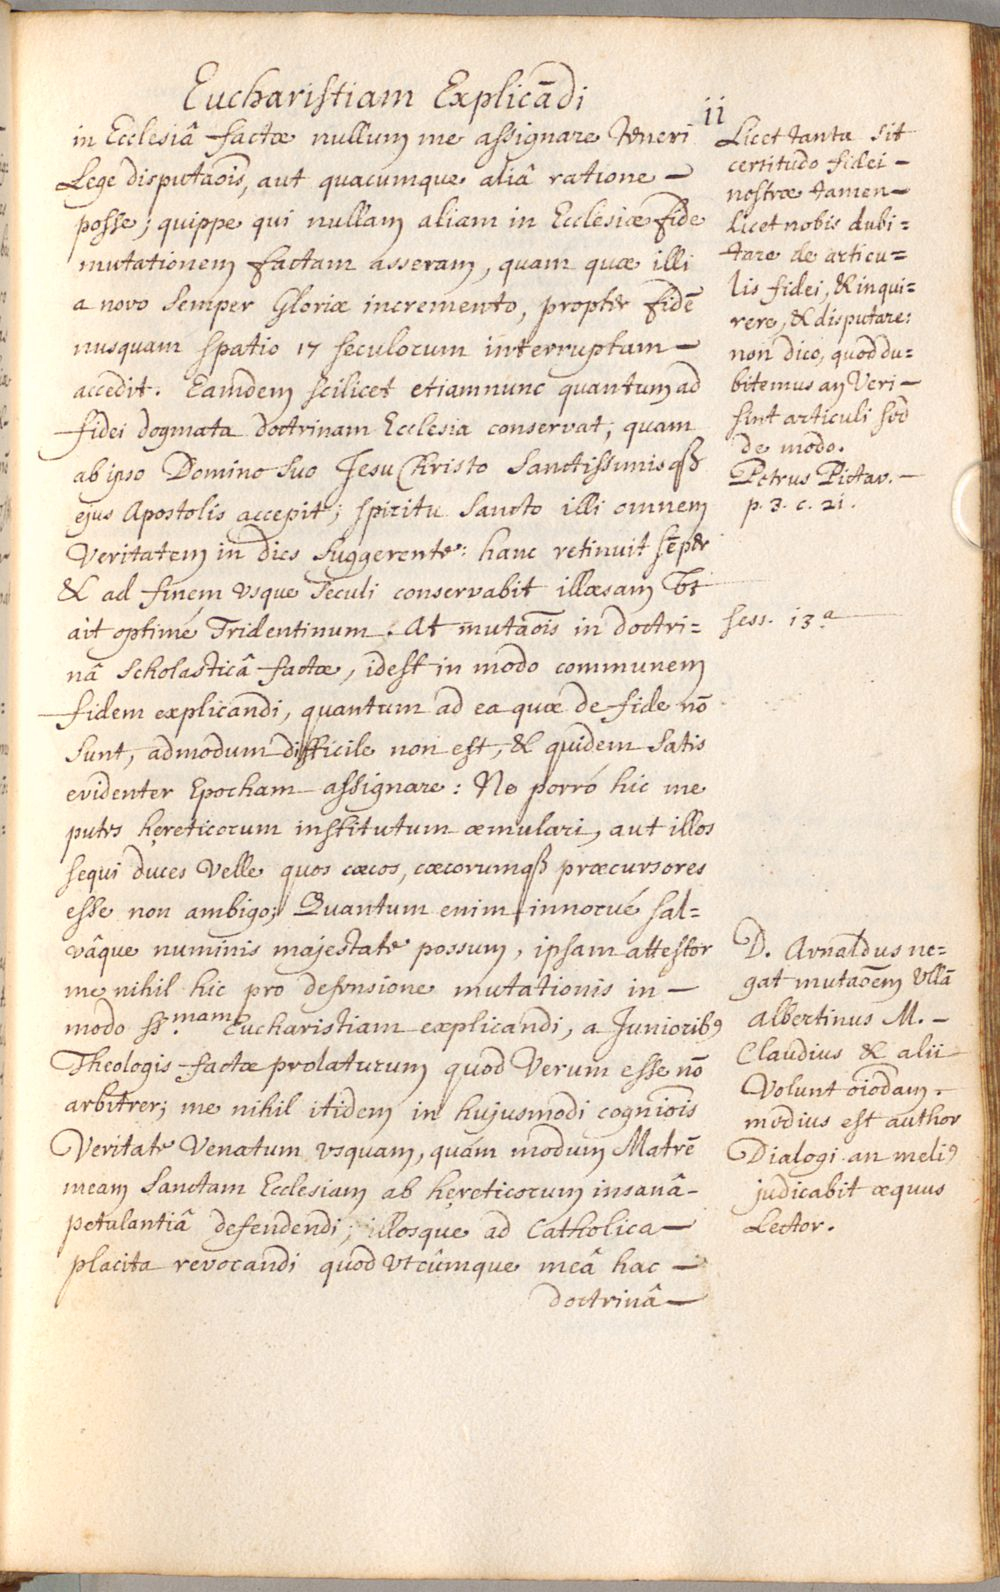 Eucharistiam Explicādi
11
in Ecclesiâ factæ nullum me assignare teneri
Lege disputaōis, aut quacumque aliâ ratione —
posse; quippe qui nullam aliam in Ecclesiæ fide
mutationem factam asseram, quam quæ illi
a novo semper Gloriæ incremento, propter fidē
nusquam spatio 17 seculorum interruptam —
accedit. Eamdem scilicet etiamnunc quantum ad
fidei dogmata doctrinam Ecclesia conservat, quam
ab ipso Domino suo Jesu Christo Sanctissimisqȝ
ejus Apostolis accepit; spiritu Sancto illi omnem
Veritatem in dies suggerente: hanc retinuit sēper
& ad finem vsque seculi conservabit illæsam Vt
ait optimé Tridentinum. At mutaōis in doctri=
nâ scholasticâ factæ, idest in modo communem
fidem explicandi, quantum ad ea quæ de fide nō
sunt, admodum difficile non est, & quidem satis
evidenter Epocham assignare: Ne porró hic me
putes hęreticorum institutum æmulari, aut illos
sequi duces Velle quos cæcos, cæcorumqȝ præcursores
esse non ambigo; Quantum enim innocué sal=
vâque numinis majestate possum, ipsam attestor
me nihil hic pro defensione mutationis in —
modo ss.mam Eucharistiam explicandi, a Juniorib9
Theologis factæ prolaturum quod Verum esse nō
arbitrer; me nihil itidem in hujusmodi cogniōis
Veritate Venatum vsquam, quám modum Matrē
meam Sanctam Ecclesiam ab hęreticorum insanâ-
petulantiâ defendendi, illosque ad Catholica —
placita revocandi quod Vtcûmque meâ hac —
doctrinâ —
Licet tanta sit
certitudo fidei —
nostræ tamen —
Licet nobis dubi=
tare de articu=
lis fidei, & inqui=
rere, & disputare:
non dico, quod du=
bitemus an Veri —
sint articuli sed
de modo.
Petrus Pictav. —
p. 3. c. 21.
sess. 13.a
D. Arnaldus ne=
gat mutaōem Vllā
Albertinus M. —
Claudius & alii
Volunt oīodam.
medius est author
Dialogi an meli9
judicabit æquus
Lector.